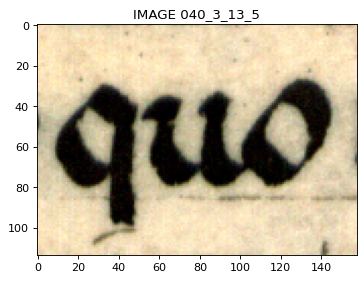 IMAGE 040_3_13_5
0
20
40
60
80
100
quo
0 20 40 60 80 100 120 140